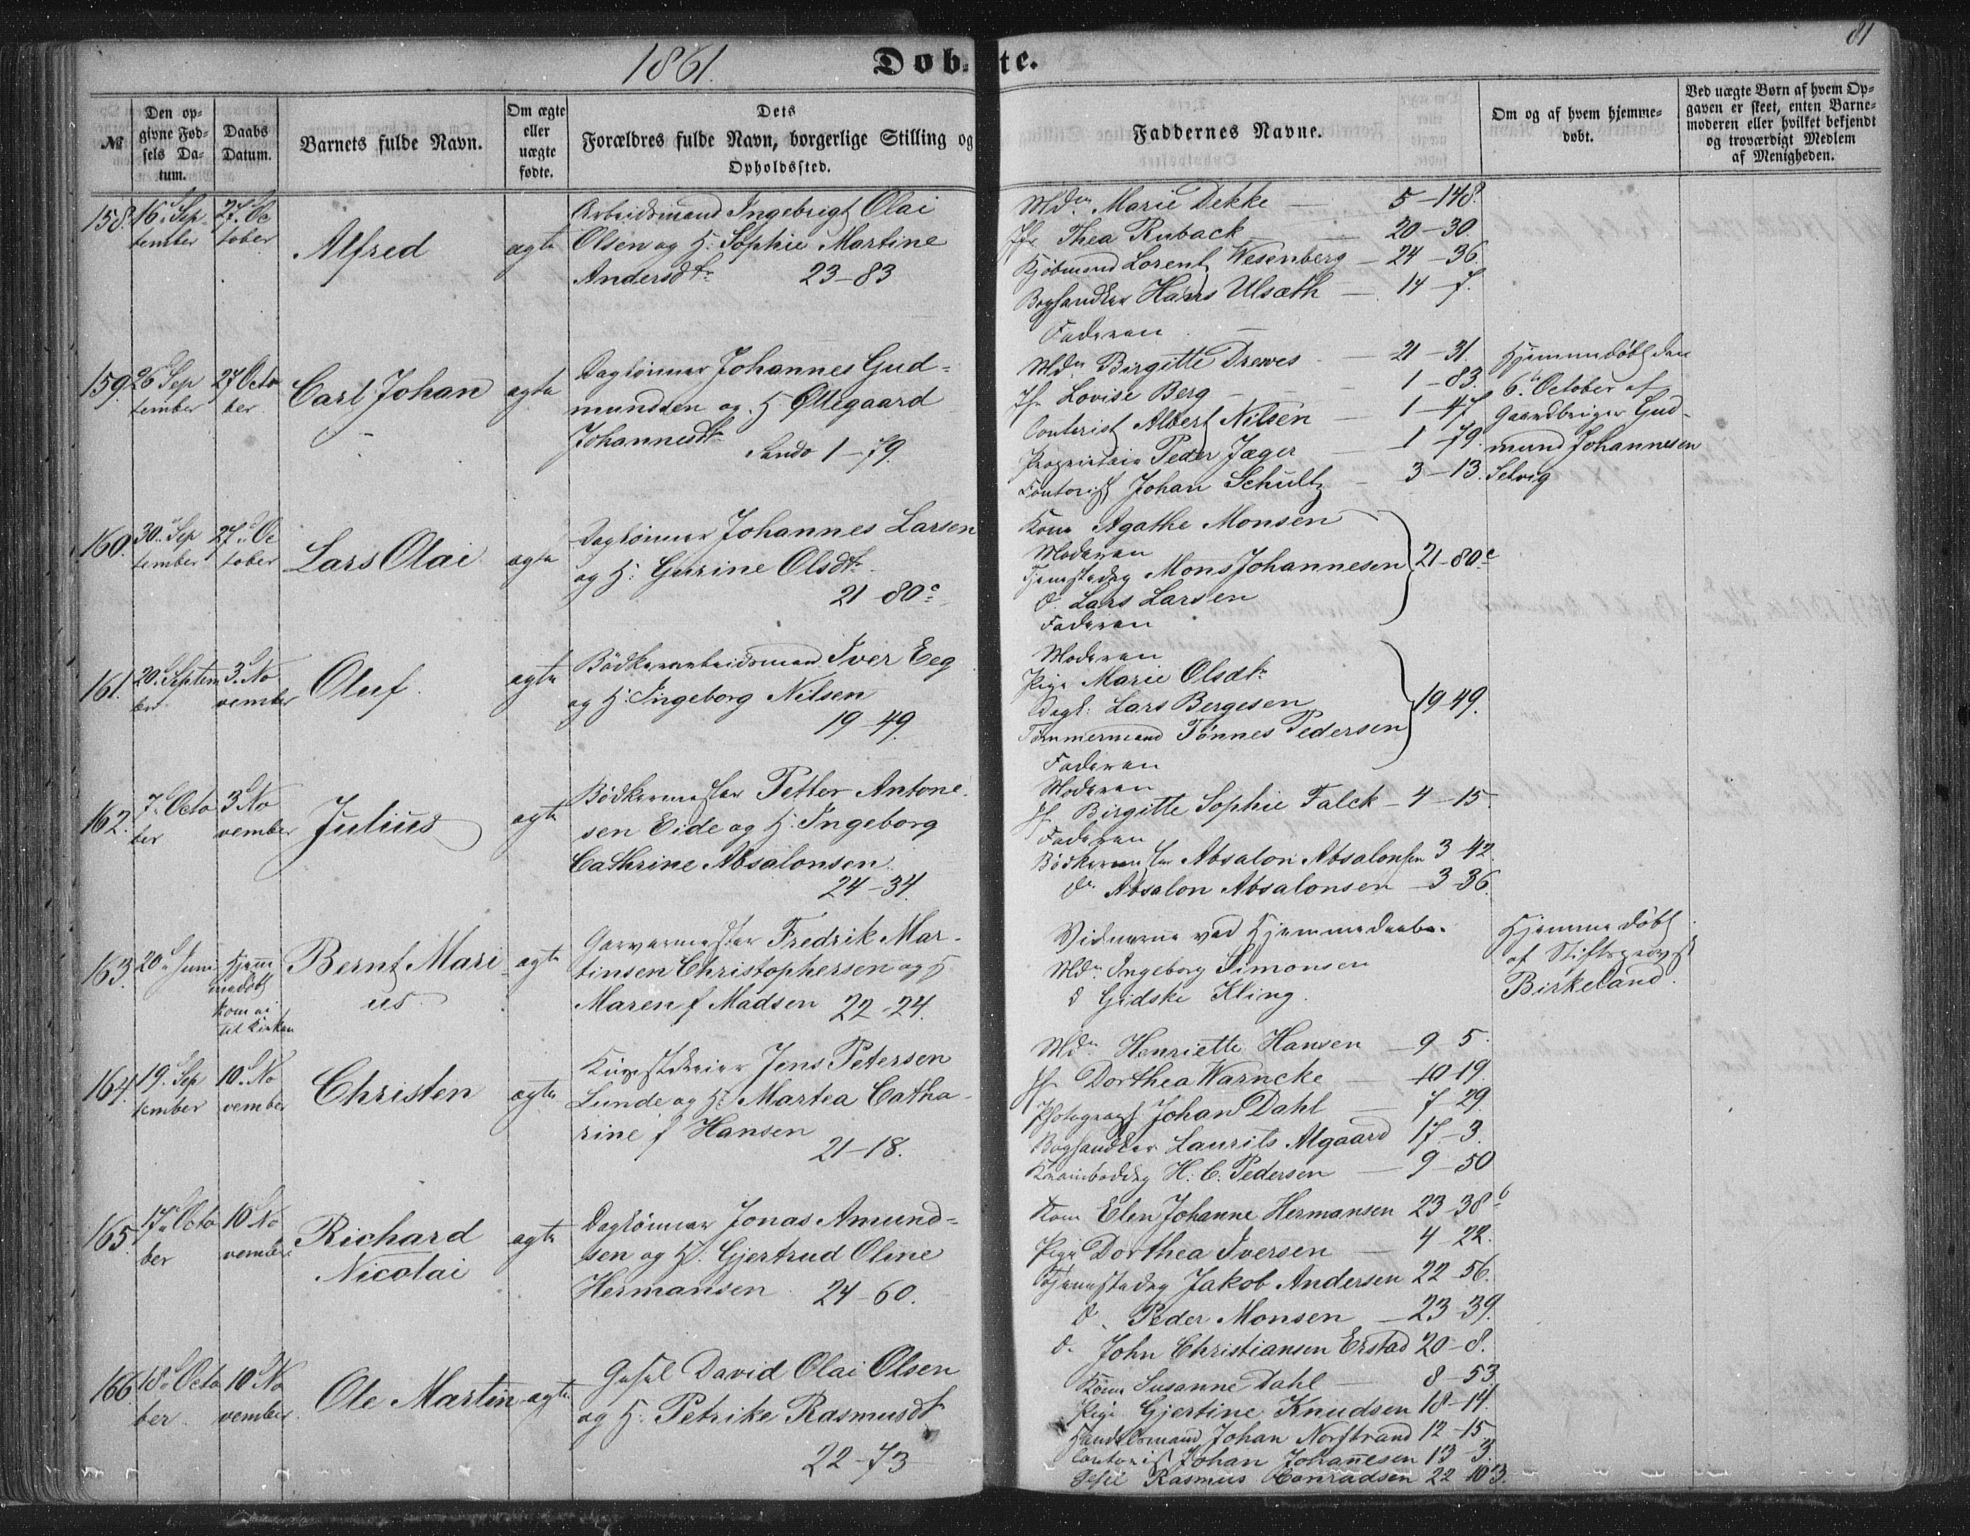 1861.
Døbte.
81
№
Den opgivne Fødsels Datum.
Daabs Datum.
Barnets fulde Navn.
Om ægte eller uægte fødte.
Dets Forældres fulde Navn, borgerlige Stilling og Opholdssted.
Faddernes Navne.
Om og af hvem hjemmedøbt.
Ved uægte Børn af hvem Opgaven er skeet, enten Barnemoderen eller hvilket bekjendt og troværdigt Medlem af Menigheden.
158. 16 September 27 October Alfred ægte
Arbeidsmand Ingebrigt Olai
Olsen og H. Sophie Martine
Andersdtr 23-83
Mdm Marie Dekke 5-148.
Jfr Thea Ruback 20-30
Kjøbmand Lorentz Wesenberg 24-36.
Boghandler Hans Ulsæth 14-7.
Faderen
159. 26 September 27 October Carl Johan ægte
Daglønner Johannes Gud-
mundsen og H Øllegaard
Johannesdtr
Sandv 1-79.
Mdm Birgitte Drewes 21-31.
Jfr Lovise Berg 1-83.
Contorist Albert Nilsen 1-47
Proprietair Peder Jæger 1-79.
Contorist Johan Schultz 3-13.
Hjemmedøbt den
6 October af
Gaardbruger Gud-
mund Johannesen
Selvig
160. 30 September 27 October Lars Olai ægte
Daglønner Johannes Larsen
og H. Gurine Olsdtr
21-80c
Kone Agathe Monsen
Moderen
Tjenestedrg Mons Johannesen 21-80c
d. Lars Larsen
Faderen
161. 20 September 3 November Oluf ægte
Bødkerarbeidsmand Iver Eeg
og H. Ingeborg Nilsen
19-49.
Moderen
Pige Marie Olsdtr
Dagl. Lars Bergesen 19-49.
Tømmermand Tønnes Pedersen
Faderen
162. 7 October 3 November Julius ægte
Bødkermester Petter Antone-
sen Eide og H. Ingeborg
Cathrine Absalonsen.
24-34.
Moderen
Jf Birgitte Sophie Falck 4-15.
Faderen
Bødkermester Absalon Absalonsen 3-42.
do Absalon Absalonsen 3-36.
163. 20 Juni Hjemmedøbt kom ei til kirken Bernt Marius ægte
Garvermester Fredrik Mar-
tinsen Christophersen og H
Maren f Madsen 22-24.
Vidnerne ved Hjemmedaaben
Mdm Ingeborg Simonsen
d Gidske Kling.
Hjemmedøbt
af Stiftsprovst
Birkeland.
164. 19 September 10 November Christen ægte
Kunstdreier Jens Petersen
Lunde og H. Martea Catha-
rine f Hansen
21-18.
Mdm Henriette Hansen 9-5.
Jf Dorthea Warncke 10-19.
Photograph Johan Dahl 7-29
Boghandler Laurits Algaard 17-3.
Kramboddrg H. C. Pedersen 9-50
165. 17 October 10 November Richard Nicolai ægte
Daglønner Jonas Amund-
sen og H. Gjertrud Oline
Hermansen 24-60.
Kone Elen Johanne Hermansen 23-38b
Pige Dorthea Iversen 4-22.
Tjenestedrg Jakob Andersen 22-56.
d. Peder Monsen 23-39.
d. John Christiansen Erstad 20-8.
166. 18 October 10 November Ole Martin ægte
Gesel David Olai Olsen
og H. Petrike Rasmusdtr
22-73
Kone Susanne Dahl 8-53.
Pige Gjertine Knudsen 18-14.
Handelsmand Johan Norstrand 12-15
Contorist Johan Johannesen 13-3.
Gesel Rasmus Conradsen 22-103.